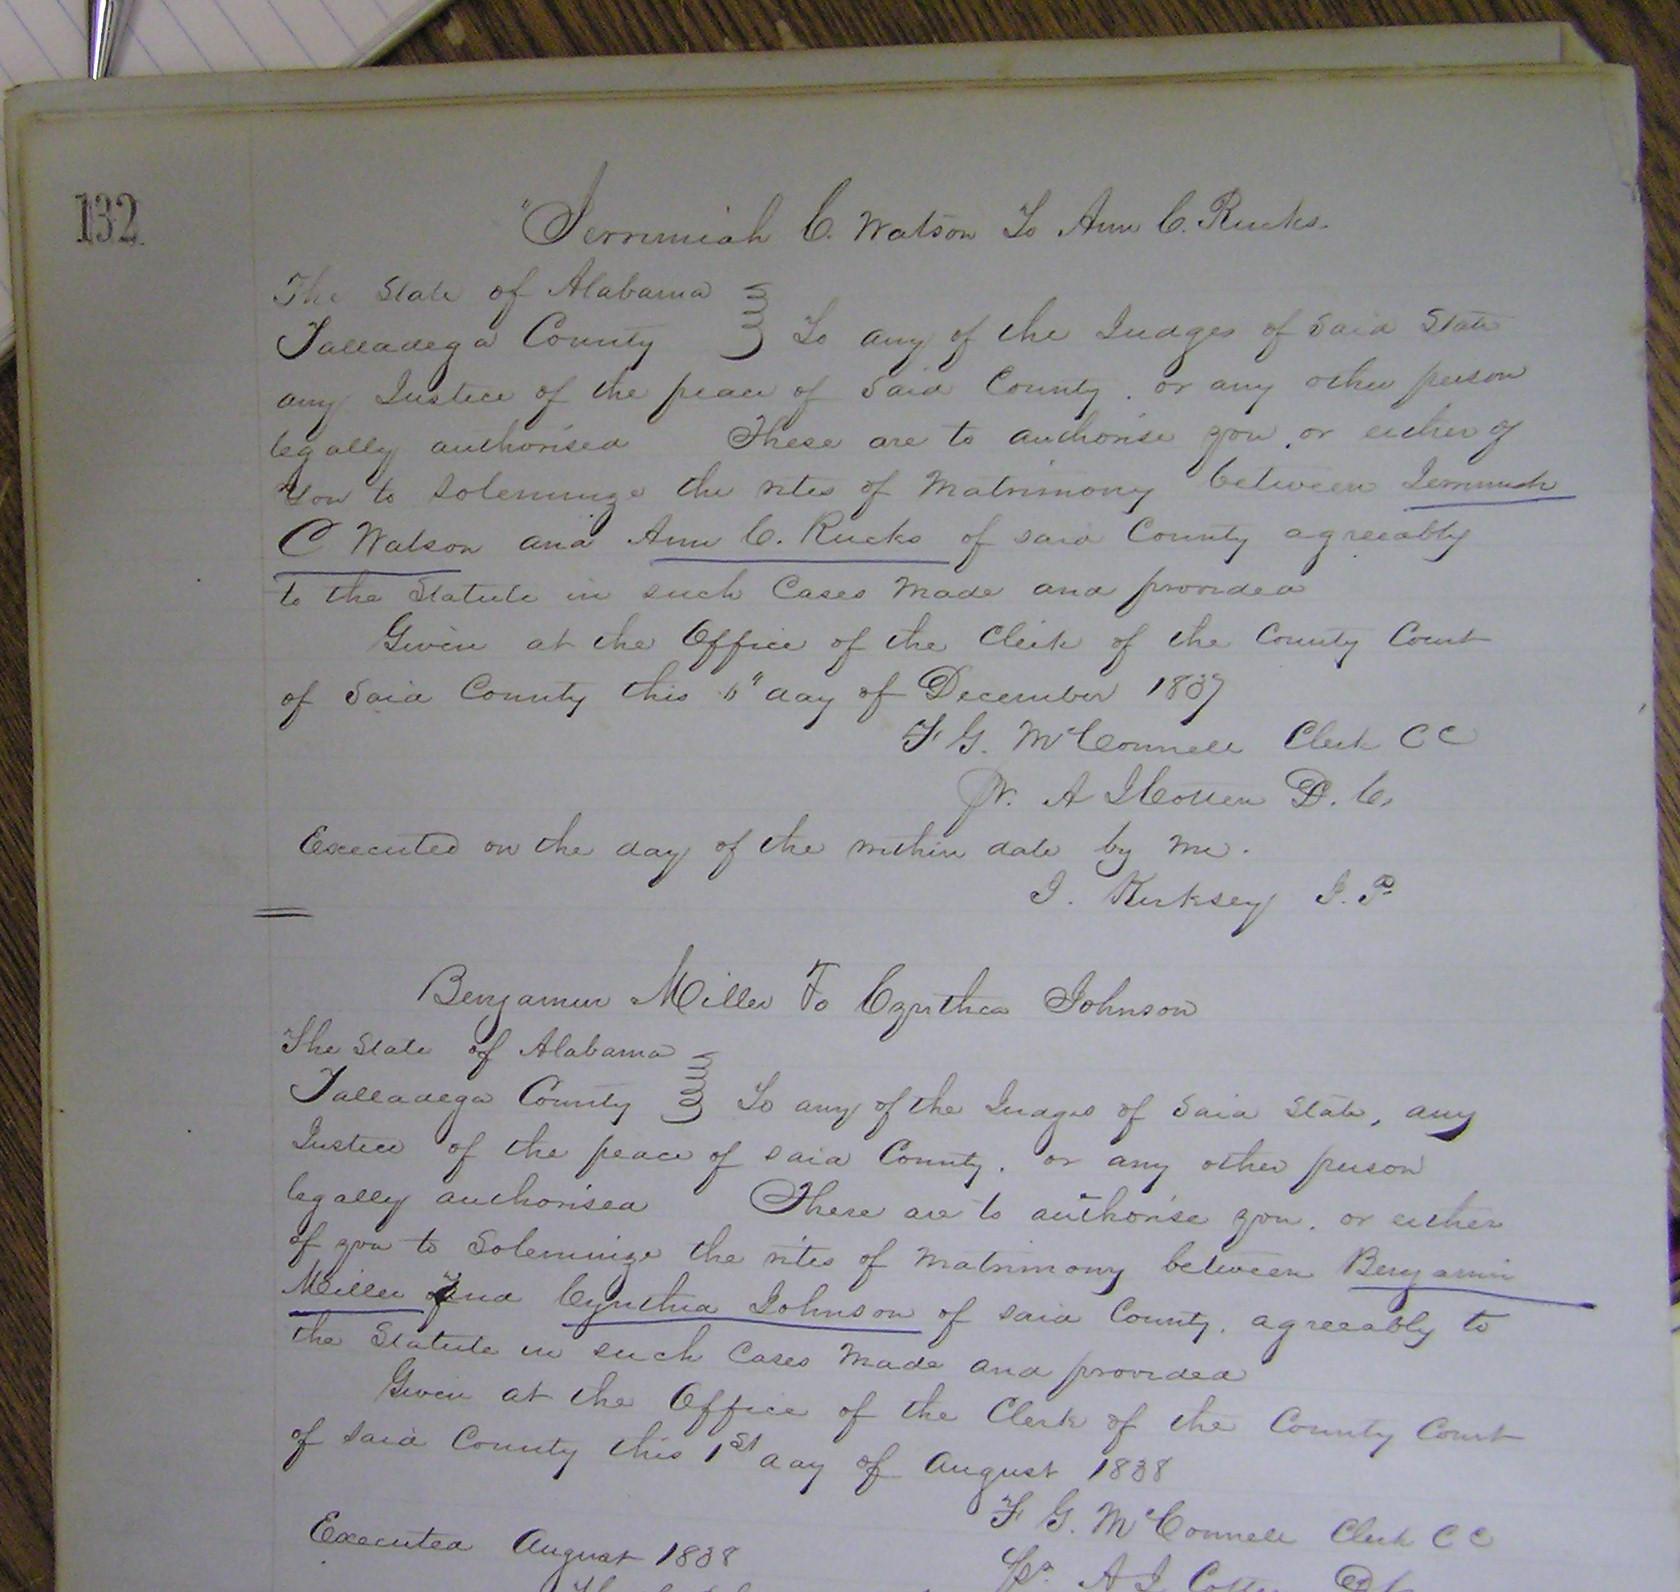 132
"Jerrimiah C. Watson To Ann C. Rucks.
The State of Alabama
Talladega County } To any of the Judges of Said State
any Justice of the peace of Said County, or any other person
legally authorised These are to authorise you, or either of
You to Solemnize the rites of Matrimony between Jerrimiah
C Watson and Ann C. Rucks of said County agreeably
to the Statute in such Cases Made and provided
Given at the Office of the Clerk of the County Court
of Said County this " day of December 1837
F G. McConnell Clerk CC
A J Cotten D. C.
Executed on the day of the within date by me.
J. Kirksey J. P.
Benjamin Miller To Cynthea Johnson
The State of Alabama
Talladega County } To any of the Judges of Said State, any
Justice of the peace of said County, or any other person
legally authorised These are to authorise you, or either
of you to Solemnize the rites of Matrimony between Benjamin
Miller and Cynthia Johnson of said County, agreeably to
the Statute in such Cases Made and provided
Given at the Office of the Clerk of the County Court
of said County this 1st day of August 1838
F G. McConnell Clerk CC
Executed August 1838
A J